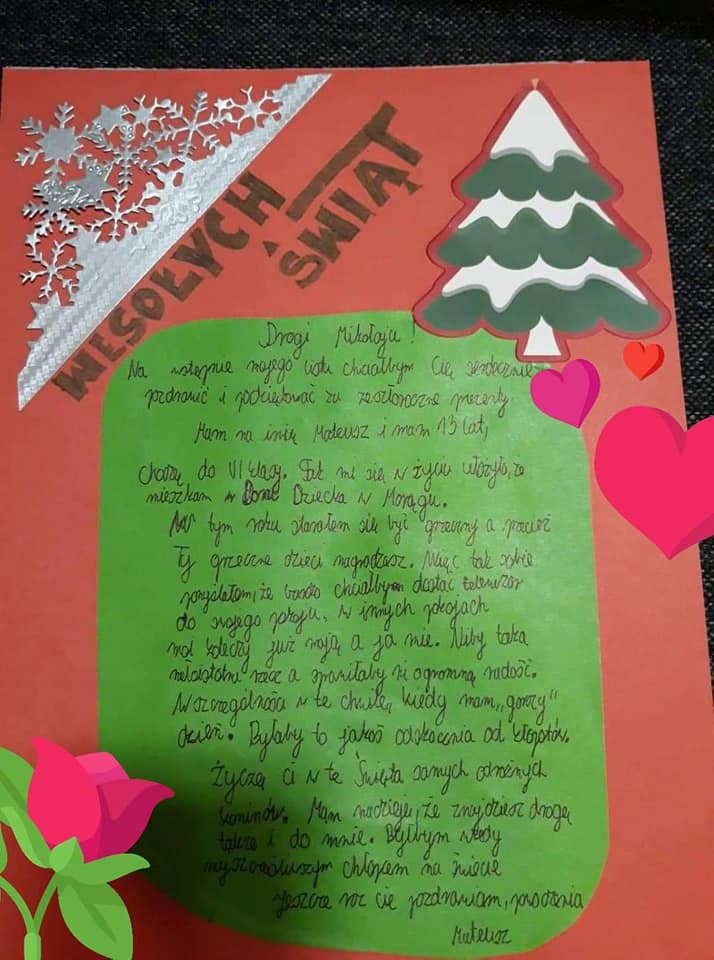 WESOŁYCH
ŚWIĄT
Drogi Mikołaju!
Na wstępie mojego listu chciałbym Cię serdecznie
pozdrowić i podziękować za zeszłoroczne prezenty.
Mam na imię Mateusz i mam 13 lat,
chodzę do VI klasy. Tak mi się w życiu ułożyło, że
mieszkam w Domu Dziecka w Morągu.
W tym roku starałem się być grzeczny a przecież
Ty grzeczne dzieci nagradzasz. Więc tak sobie
pomyślałem, że bardzo chciałbym dostać telewizor
do swojego pokoju. W innych pokojach
moi koledzy już mają a ja nie. Niby taka
nieistotna rzecz a sprawiłaby mi ogromną radość.
W szczególności w te chwile, kiedy mam „gorszy"
dzień. Byłaby to jakaś odskocznia od kłopotów.
Życzę ci w te Święta samych drożnych
kominów. Mam nadzieję, że znajdziesz drogę
także i do mnie. Byłbym wtedy
najszczęśliwszym chłopcem na świecie
Jeszcze raz cię pozdrawiam, powodzenia
Mateusz